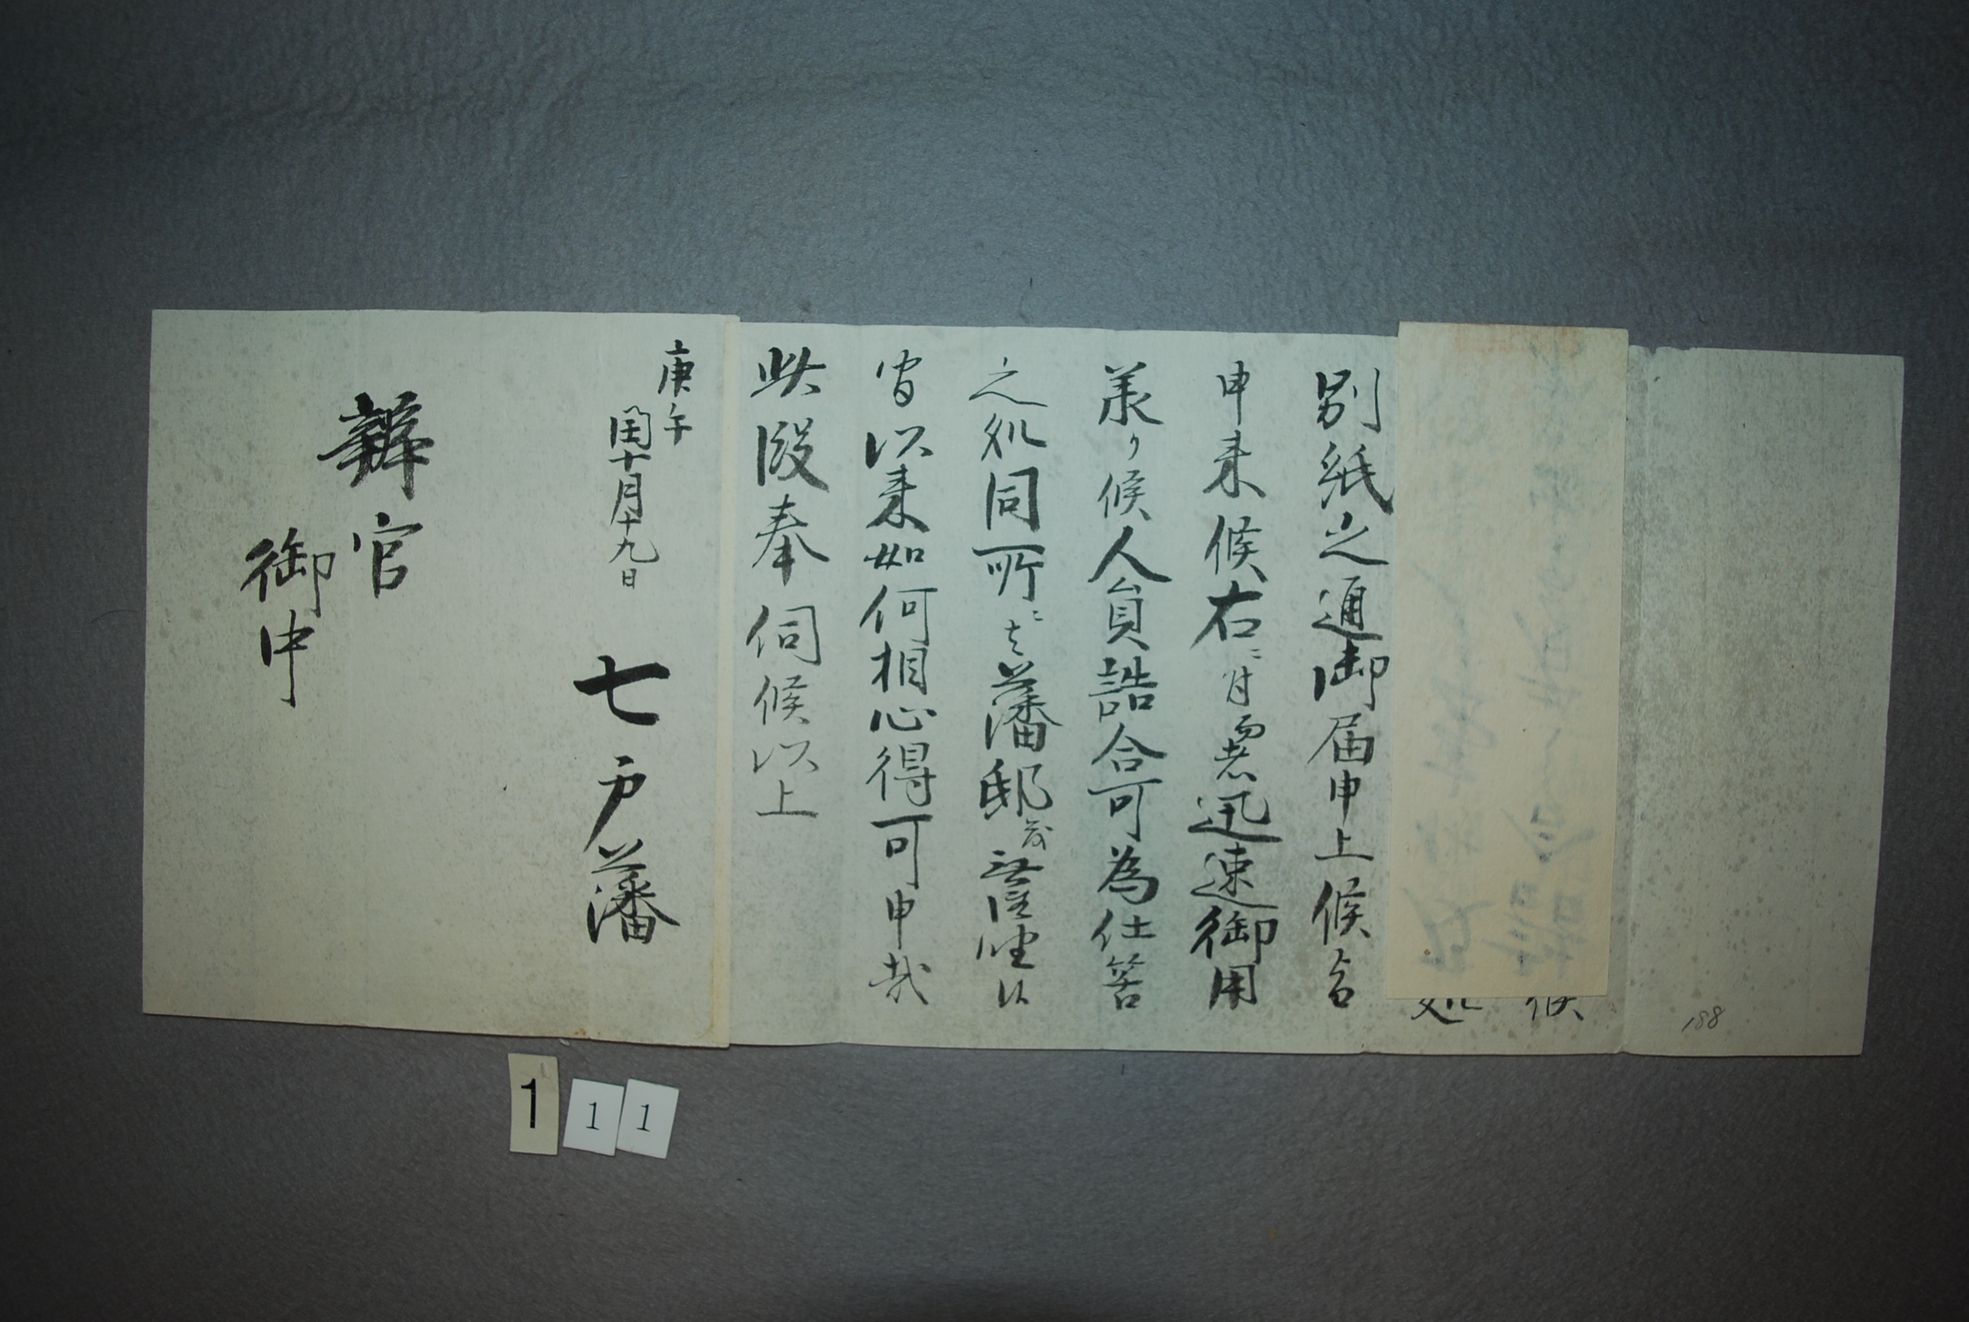 候
処
別紙之通御届申上候旨
申来候右ニ付而者迅速御用
承り候人員詰合可為仕筈
之処同所ニ者藩邸茂無御座候
間以来如何相心得可申哉
此段奉伺候以上
庚午
閏十月十九日
七戸藩
辨官
御中
188
1
1
1